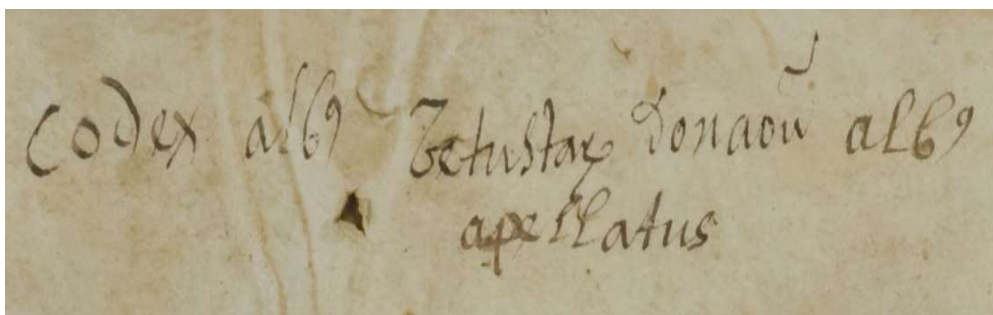 Codex albꝰ Vetustaꝝ donaoũ albꝰ
apellatus